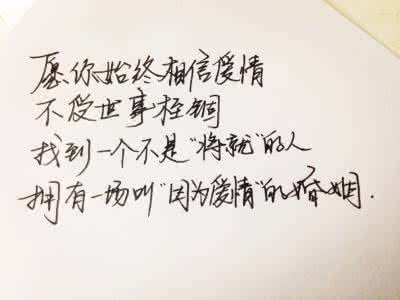 愿你始终相信爱情
不受世事桎锢
找到一个不是"将就"的人
拥有一场叫"因为爱情"的婚姻.